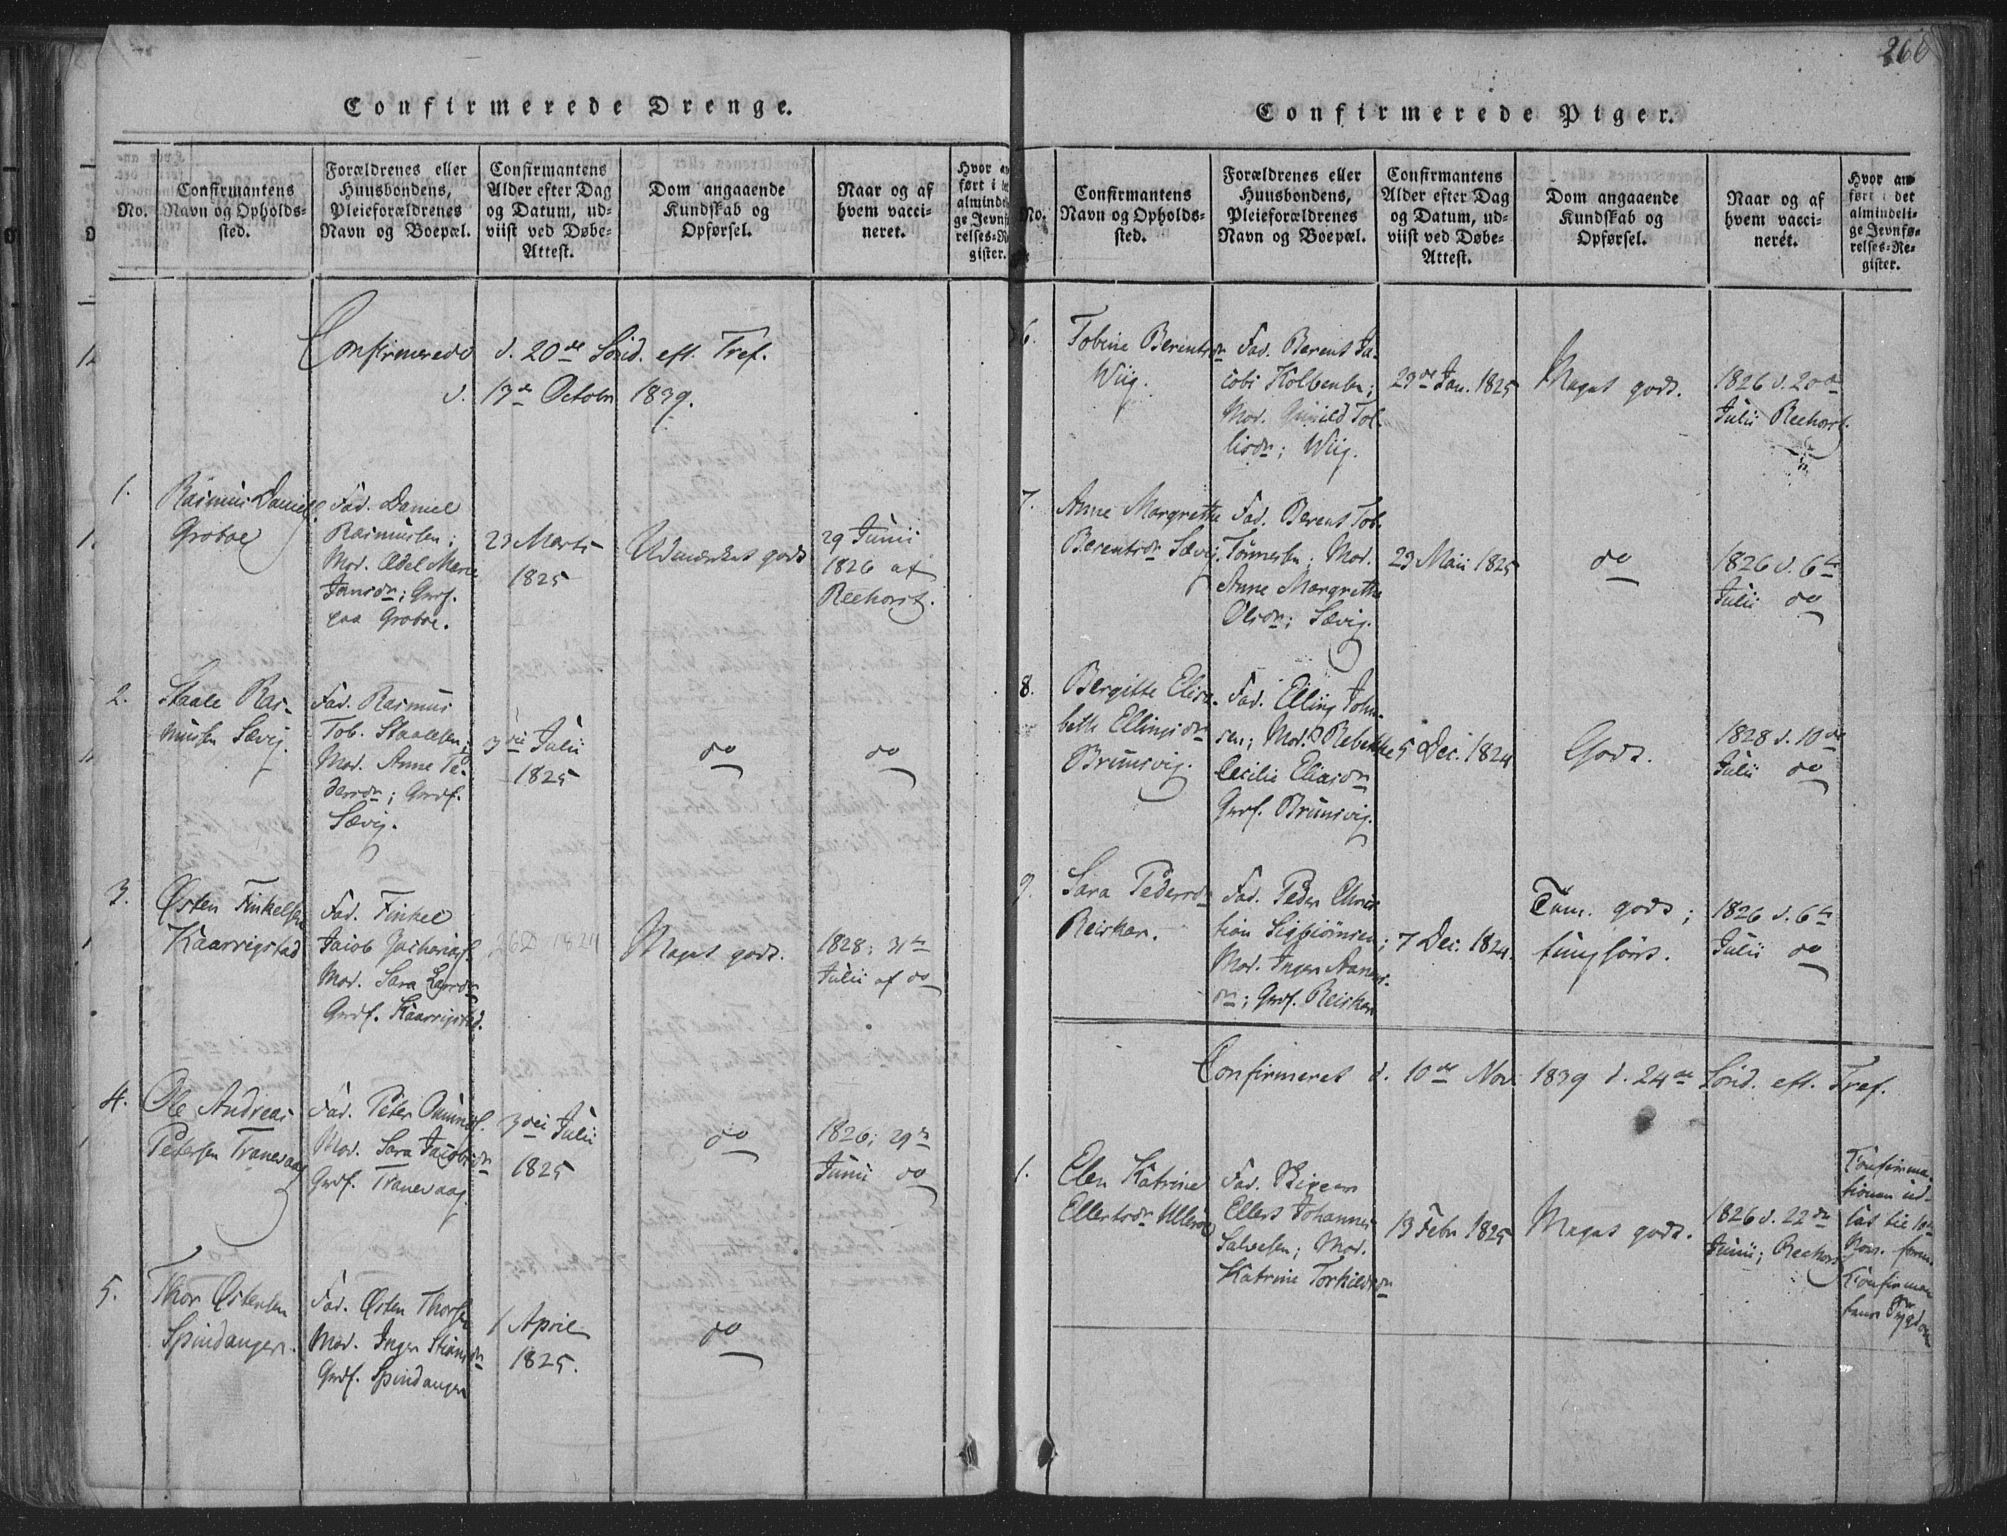 266
Confirmerede Drenge.
No.
Confirmantens
Navn og Opholds-
sted.
Forældrenes eller
Huusbondens,
Pleieforældrenes
Navn og Boepæl.
Confirmantens
Alder efter Dag
og Datum, ud-
viist ved Døbe-
Attest.
Dom angaaende
Kundskab og
Opførsel.
Naar og af
hvem vacci-
neret.
Confirmerede d. 20de Sönd. eft. Tref.
d. 13de Octobr 1839.
1.
Rasmus Daniels.
Groboe
Fad. Daniel
Rasmussen;
Mod. Adel Marie
Jansdr; Grdf.
paa Groboe.
23 Marts
1825
Udmærket godt
29 Junii
1826 af
Reehorst.
2.
Staale Ras-
mussen Sævig.
Fad. Rasmus
Tob. Staalesen;
Mod. Anne Pe-
dersdr; Grdf.
Sævig.
3die Julii
1825
do
do
3.
Østen Finkelsen
Kaarrigstad
Fad. Finkel
Jacob Zachariasf.
Mod. Sara Larsdr
Grdf. Kaarrigstad.
26 D 1824
Meget godt.
1828; 31te
Julii af do
4.
Ole Andreas
Petersen Tranevaag
Fad. Peter
Mod. Sara Jacobsdr
Grdf. Tranevaag.
3die Julii
1825
do
1826; 29de
Junii do
5.
Thor Østensen
Spindanger.
Fad. Østen Thorsen
Mod. Inger Stiansdr
Grdf. Spindanger
1 April
1825.
do
Confirmerede Piger.
No.
Confirmantens
Navn og Opholds-
sted.
Forældrenes eller
Huusbondens,
Pleieforældrenes
Navn og Boepæl.
Confirmantens
Alder efter Dag
og Datum, ud-
viist ved Døbe-
Attest.
Dom angaaende
Kundskab og
Opførsel.
Naar og af
hvem vacci-
neret.
Hvor an-
ført i det
almindeli-
ge Jevnfø-
relses-Re-
gister.
6.
Tobine Berentsdr
Wiig.
Fad. Berent Ja-
cobs Kolbensen;
Mod. Gunild Tol-
lisdr; Wiig.
23de Jan. 1825
Meget godt.
1826 d. 20de
Julii Reehorst.
7.
Anne Margrethe
Berentsdr Sævig
Fad. Berent Tob.
Tönnessen; Mod.
Anne Margrethe
Olsdr; Sævig.
23 Maii 1825
do
1826 d. 6te
Julii do
8.
Bergitte Elisa-
beth Ellingsdr
Brunsvig.
Fad. Elling John-
sen; Mod. Rebekke
Cecilie Eliasdr
Grdf. Brunsvig.
5 Dec. 1824
Godt.
1828 d. 10de
Julii do
9.
Sara Pedersdr
Reisker.
Fad. Peder Chris
tian Sigbiörnsen;
Mod. Inger Aanens-
dr; Grdf. Reisker
7 Dec. 1824.
Tem. godt;
tungförs.
1826 d. 6te
Julii do
Confirmeret d. 10de Nov. 1839 d. 24de Sönd. eft. Tref.
1.
Elen Katrine
Ellertsdr Ulleröe
Fad.
Ellert Johannes
Salvesen; Mod.
Katrine Torkildsdr
13 Febr. 1825
Meget godt.
1826 d. 22de
Junii; Reehorst
Confirma-
tionen ud-
sat til 10de
Nov.
Confirman
tens Sygdom